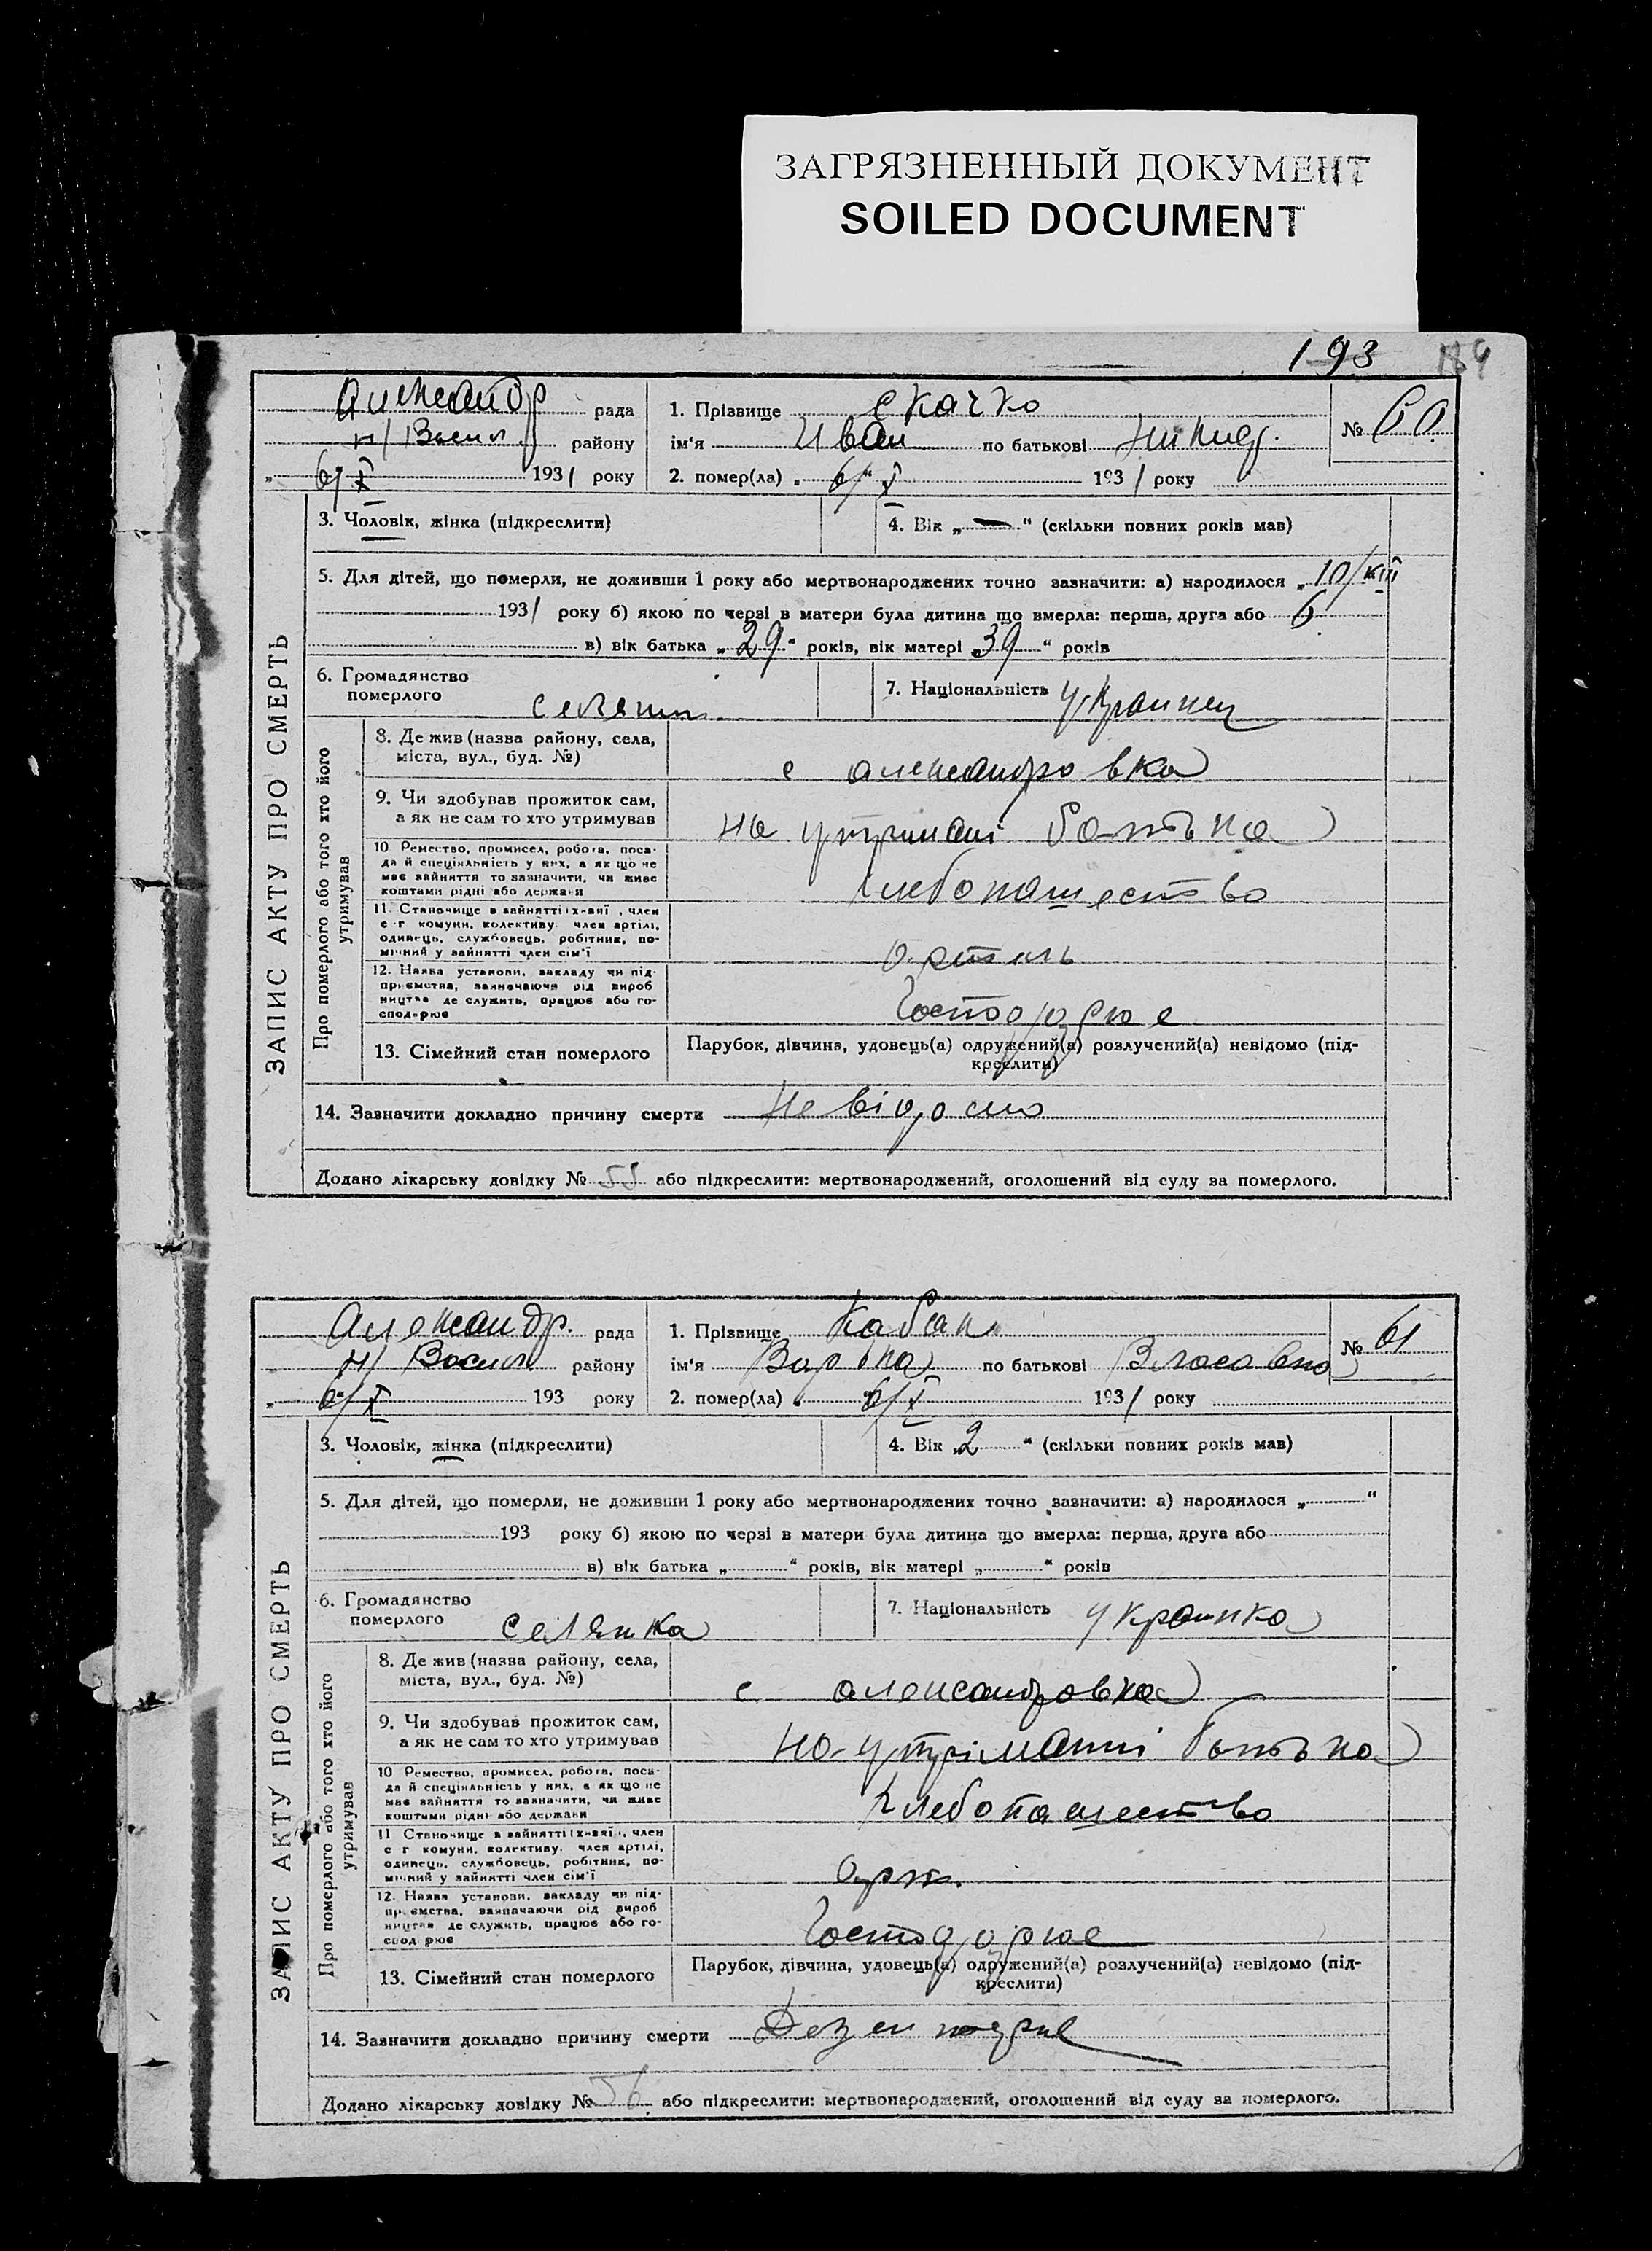 ЗАГРЯЗНЕННЫЙ ДОКУМЕНТ
SOILED DOCUMENT
193 189
Александр рада
н/Васил району
6/X 1931 року
1. Прізвище Скачко
ім'я Иван по батькові
№ 60
2. помер(ла) 6/X 1931 року
ЗАПИС АКТУ ПРО СМЕРТЬ
3. Чоловік, жінка (підкреслити)
4. Вік „—" (скільки повних років мав)
5. Для дітей, що померли, не доживши 1 року або мертвонароджених точно зазначити: а) народилося „10/
1931 року б) якою по черзі в матери була дитина що вмерла: перша, друга або 6
в) вік батька „29" років, вік матері „39" років
6. Громадянство
померлого селянин
7. Національність Украинец
Про померлого або того хто його
утримував
8. Де жив (назва району, села,
міста, вул., буд. №)
с александровка
9. Чи здобував прожиток сам,
а як не сам то хто утримував
на утримані батька
10 Ремество, промисел, робота, поса-
да й спеціяльність у них, а як що не
має зайняття то зазначити, чи живе
коштами рідні або держави
хлебопашество
11. Становище в зайнятті (х-вяї , член
с г. комуни, колективу, член артілі,
одинець, службовець, робітник, по-
мічний у зайнятті член сім'ї
артель
12. Назва установи, закладу чи під-
приємства, зазначаючи рід вироб
ництва де служить, працює або го-
сподарює
Господарює
13. Сімейний стан померлого
Парубок, дівчина, удовець(а) одружений(а) розлучений(а) невідомо (під-
креслити)
14. Зазначити докладно причину смерти Невідомо
Додано лікарську довідку № 55 або підкреслити: мертвонароджений, оголошений від суду за померлого.
Александр. рада
н/ Васил району
6/X 193 року
1. Прізвище Кабан
ім'я Варька по батькові Власовна
№ 61
2. помер(ла) 6/X 1931 року
ЗАПИС АКТУ ПРО СМЕРТЬ
3. Чоловік, жінка (підкреслити)
4. Вік „2" (скільки повних років мав)
5. Для дітей, що померли, не доживши 1 року або мертвонароджених точно зазначити: а) народилося „ "
193 року б) якою по черзі в матери була дитина що вмерла: перша, друга або
в) вік батька „ " років, вік матері „ " років
6. Громадянство
померлого селянка
7. Національність Украинка
Про померлого або того хто його
утримував
8. Де жив (назва району, села,
міста, вул., буд. №)
с александровка
9. Чи здобував прожиток сам,
а як не сам то хто утримував
на утріманні батька
10 Ремество, промисел, робота, поса-
да й спеціяльність у них, а як що не
має зайняття то зазначити, чи живе
коштами рідні або держави
хлебопашество
11 Становище в зайнятті (х-вяї , член
с г комуни, колективу, член артілі,
одинець, службовець, робітник, по-
мічний у зайнятті член сім'ї
арт.
12. Назва установи, закладу чи під-
приємства, зазначаючи рід вироб
ництва де служить, працює або го-
сподарює
Господарює
13. Сімейний стан померлого
Парубок, дівчина, удовець(а) одружений(а) розлучений(а) невідомо (під-
креслити)
14. Зазначити докладно причину смерти
Додано лікарську довідку № 56 або підкреслити: мертвонароджений, оголошений від суду за померлого.